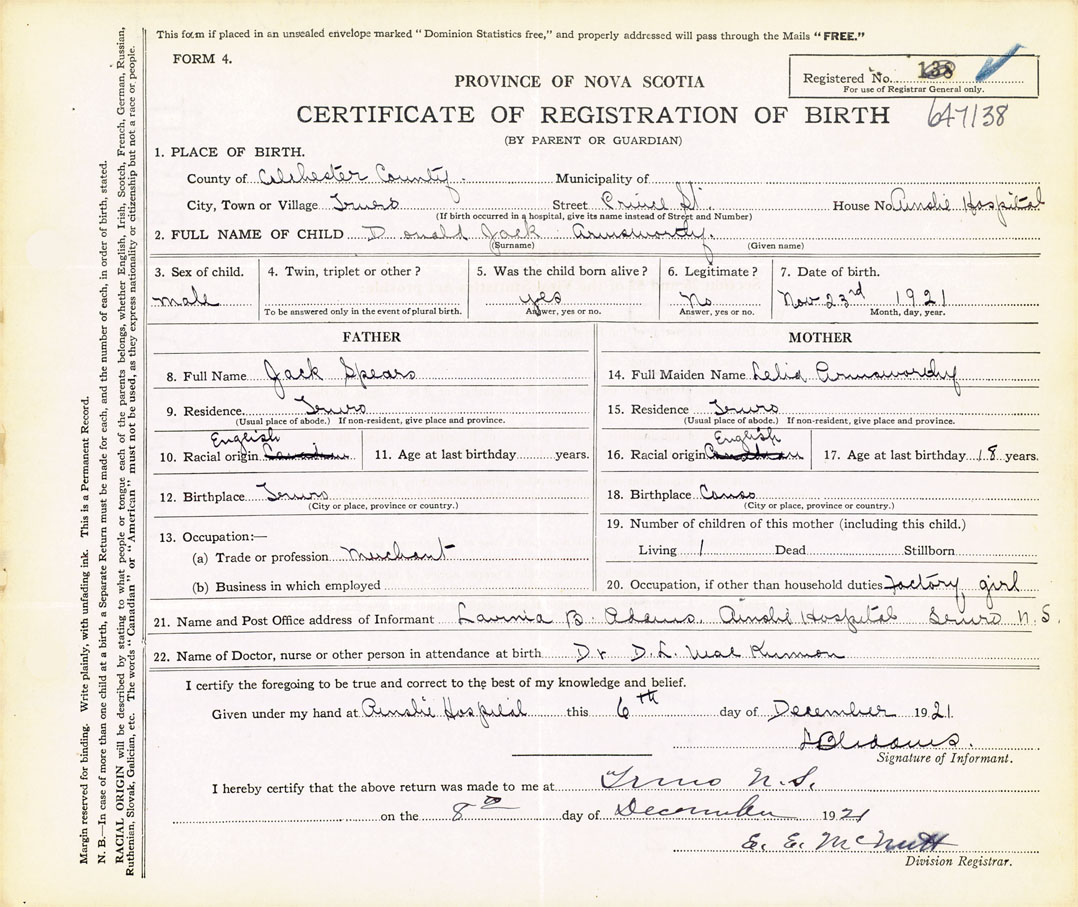 This form if placed in an unsealed envelope marked "Dominion Statistics free," and properly addressed will pass through the Mails "FREE."
FORM 4.
Registered No. 138
For use of Registrar General only.
PROVINCE OF NOVA SCOTIA
CERTIFICATE OF REGISTRATION OF BIRTH 647138
(BY PARENT OR GUARDIAN)
1. PLACE OF BIRTH.
County of Colchester County. Municipality of
City, Town or Village Truro Street Prince St. House No Ainslie Hospital
(If birth occurred in a hospital, give its name instead of Street and Number)
2. FULL NAME OF CHILD Donald Jack Armsworthy.
(Surname) (Given name)
3. Sex of child. 4. Twin, triplet or other? 5. Was the child born alive? 6. Legitimate? 7. Date of birth.
male yes No Nov 23rd 1921
To be answered only in the event of plural birth. Answer, yes or no. Answer, yes or no. Month, day, year.
FATHER MOTHER
8. Full Name Jack Spears 14. Full Maiden Name Lelia Armsworthy
9. Residence. Truro 15. Residence Truro
(Usual place of abode.) If non-resident, give place and province. (Usual place of abode.) If non-resident, give place and province.
English English
10. Racial origin Canadian 11. Age at last birthday years. 16. Racial origin Canadian 17. Age at last birthday 18 years.
12. Birthplace Truro 18. Birthplace Canso
(City or place, province or country.) (City or place, province or country.)
13. Occupation:— 19. Number of children of this mother (including this child.)
(a) Trade or profession Merchant Living 1 Dead Stillborn
(b) Business in which employed 20. Occupation, if other than household duties Factory girl
21. Name and Post Office address of Informant Lavinia B. Adams. Ainslie Hospital Truro N.S.
22. Name of Doctor, nurse or other person in attendance at birth Dr D. L. MacKinnon
I certify the foregoing to be true and correct to the best of my knowledge and belief.
Given under my hand at Ainslie Hospital this 6th day of December 1921.
LBAdams.
Signature of Informant.
I hereby certify that the above return was made to me at Truro N.S.
on the 8th day of December 1921
E. E. McNutt
Division Registrar.
Margin reserved for binding. Write plainly, with unfading ink. This is a Permanent Record.
N. B.—In case of more than one child at a birth, a Separate Return must be made for each, and the number of each, in order of birth, stated.
RACIAL ORIGIN will be described by stating to what people or tongue each of the parents belongs, whether English, Irish, Scotch, French, German, Russian,
Ruthenian, Slovak, Galician, etc. The words "Canadian" or "American" must not be used, as they express nationality or citizenship but not a race or people.